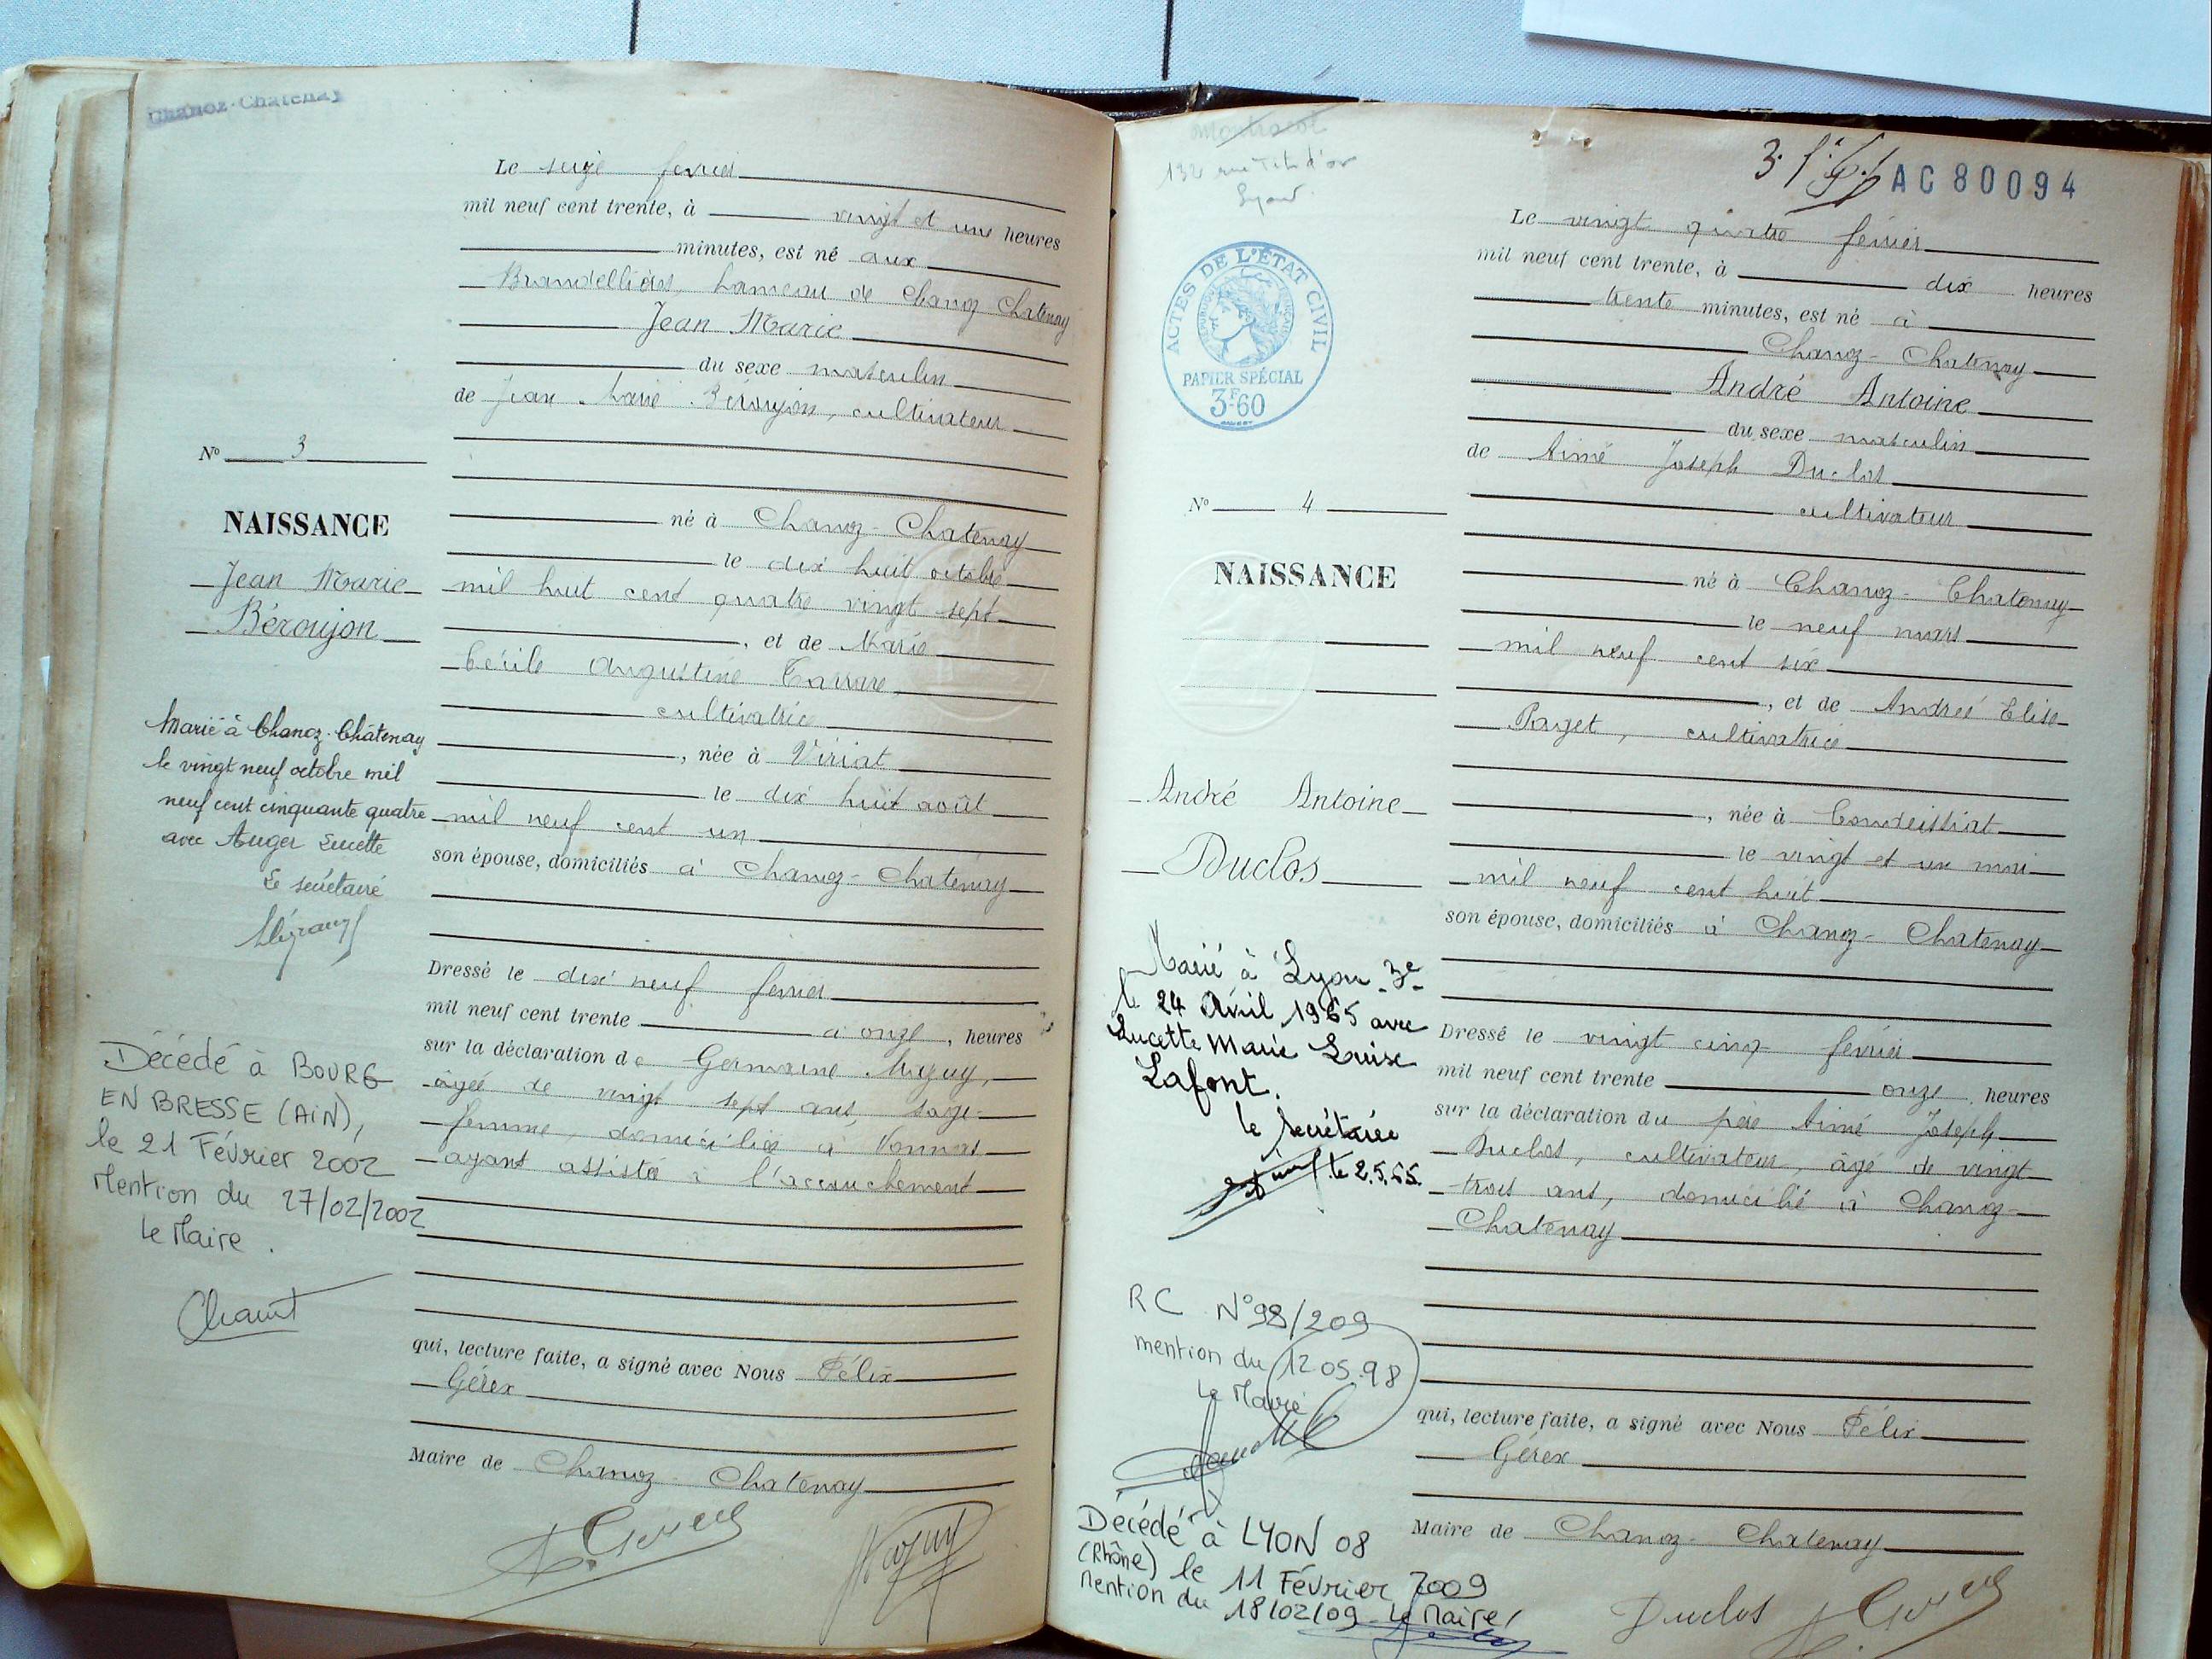 Chanoz-Chatenay
Le seize fevrier
mil neuf cent trente, à vingt et une heures
minutes, est né aux
hameau de Chanoz Chatenay
Jean Marie
du sexe masculin
de Jean Marie Béroujon, cultivateur
né à Chanoz-Chatenay
le dix huit octobre
mil huit cent quatre vingt sept
, et de Marie
Cécile Augustine
cultivatrice
, née à Viriat
le dix huit août
mil neuf cent un
son épouse, domiciliés à Chanoz-Chatenay
Dressé le dix neuf fevrier
mil neuf cent trente à onze, heures
sur la déclaration de Germaine
âgée de vingt sept ans, sage-
femme, domiciliée à Vonnas
ayant assisté à l'accouchement
qui, lecture faite, a signé avec Nous Félix
Gérex
Maire de Chanoz-Chatenay
N° 3
NAISSANCE
Jean Marie
Béroujon
Marié à Chanoz-Châtenay
le vingt neuf octobre mil
neuf cent cinquante quatre
avec Auger Lucette
Le secrétaire
Décédé à BOURG
EN BRESSE (AIN),
le 21 Février 2002
Mention du 27/02/2002
Le Maire.
132 rue Tête d'or
Lyon
AC 80094
ACTES DE L'ÉTAT CIVIL
PAPIER SPÉCIAL
3F60
Le vingt quatre février
mil neuf cent trente, à dix heures
trente minutes, est né à
Chanoz-Chatenay
André Antoine
du sexe masculin
de Aimé Joseph Duclos
cultivateur
né à Chanoz-Chatenay
le neuf mars
mil neuf cent six
, et de Andreé Elise
Paget, cultivatrice
, née à Condeissiat
le vingt et un mai
mil neuf cent huit
son épouse, domiciliés à Chanoz-Chatenay
Dressé le vingt cinq février
mil neuf cent trente onze, heures
sur la déclaration du père Aimé Joseph
Duclos, cultivateur, âgé de vingt
trois ans, domicilié à Chanoz-
Chatenay
qui, lecture faite, a signé avec Nous Félix
Gérex
Maire de Chanoz-Chatenay
Duclos
N° 4
NAISSANCE
André Antoine
Duclos
Marié à Lyon 3e
le 24 Avril 1965 avec
Lucette Marie Louise
Lafont.
le Secrétaire
le 2.5.65.
RC N°98/209
mention du 12 05.98
Le Maire
Décédé à LYON 08
(Rhône) le 11 Février 2009
Mention du 18/02/09 Le Maire,